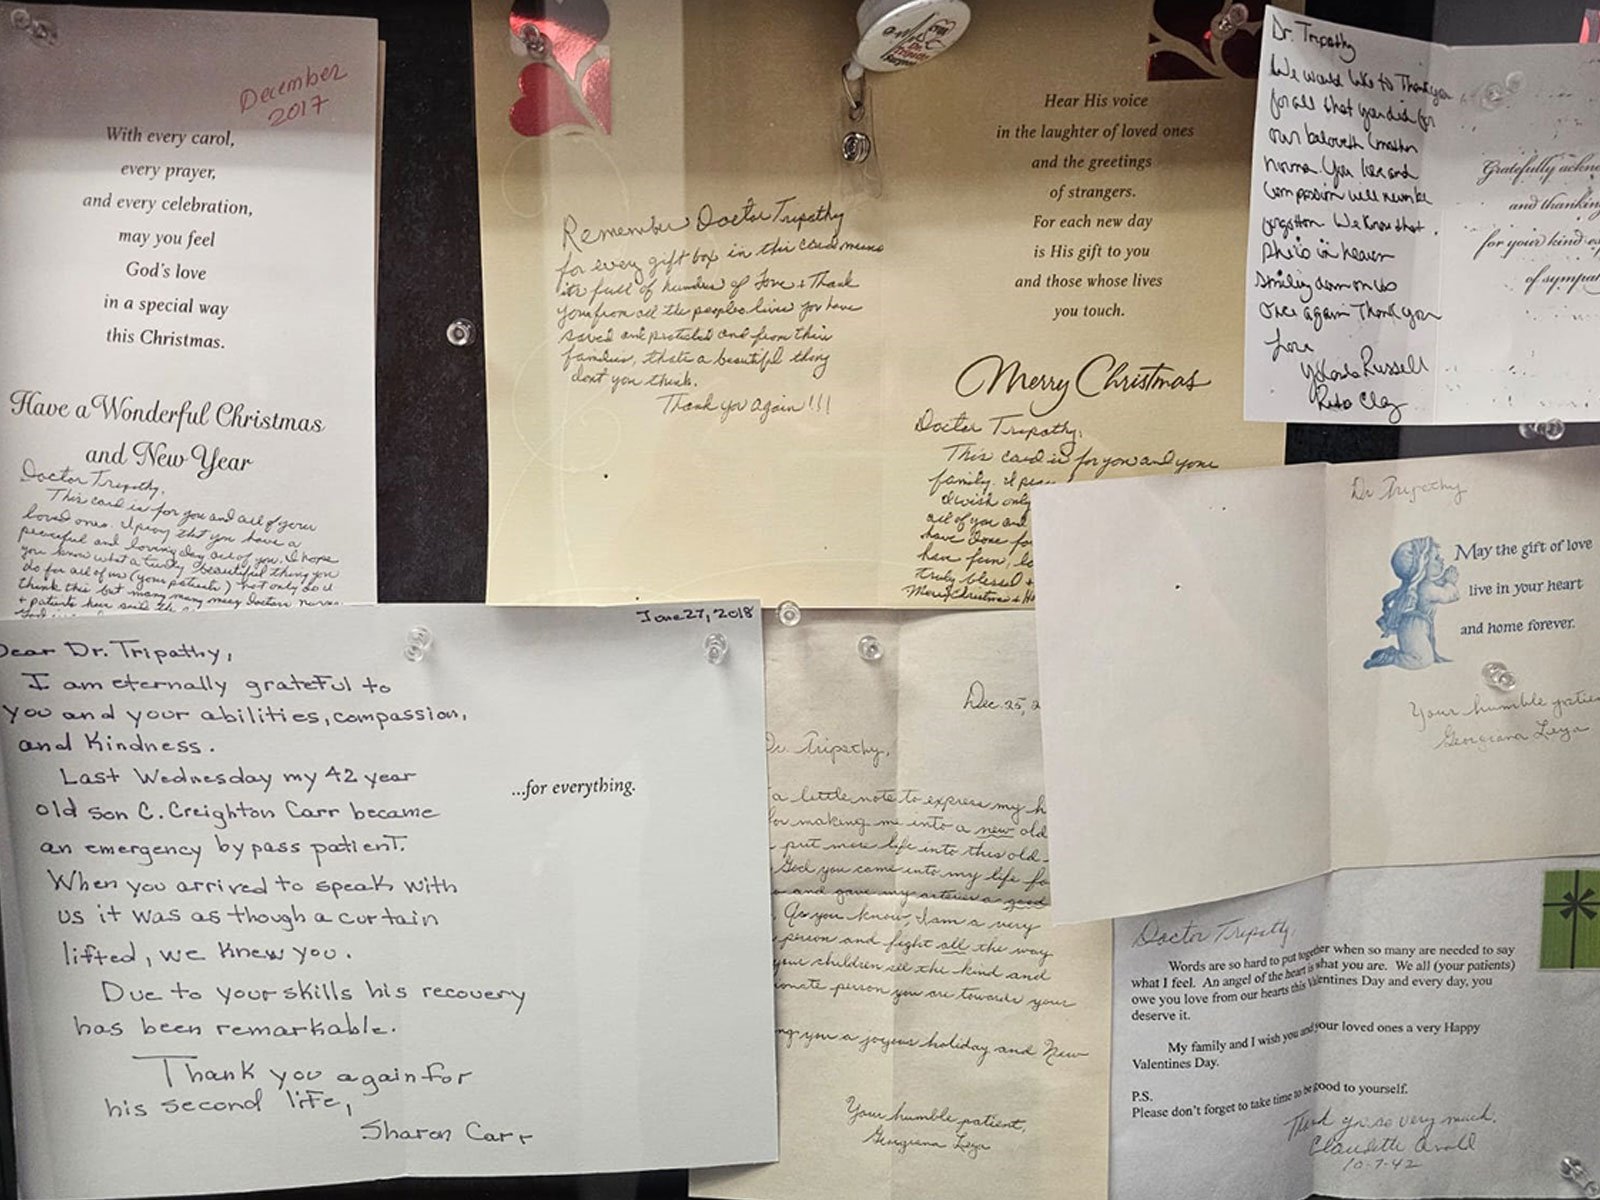 December
2017
With every carol,
every prayer,
and every celebration,
may you feel
God's love
in a special way
this Christmas.
Have a Wonderful Christmas
and New Year
Doctor Tripathy,
This card is for you and all of your
loved ones. I pray that you have a
peaceful and loving day all of you. I hope
you know what a truly beautiful thing you
do for all of us (your patients) not only do I
think this but many many many doctors nurses
+ patients have said the
Remember Doctor Tripathy
for every gift box in this card means
its full of hundreds of Love + Thank
you from all the peoples lives you have
saved and protected and from their
families, thats a beautiful thing
dont you think.
Thank you again!!!
Hear His voice
in the laughter of loved ones
and the greetings
of strangers.
For each new day
is His gift to you
and those whose lives
you touch.
Merry Christmas
Doctor Tripathy,
This card is for you and your
family. I
I wish only
all of you and
have done fo
have fun, lo
truly blessed +
Merry Christmas + H
Dr. Tripathy
We would like to Thank you
for all that you did for
our beloveth mother
Norma. You love and
Compassion will never be
forgotten. We know that
she's in heaven
smiling down on us
Once again Thank you
Love
Yolanda Russell
Reto Clay
Gratefully ackno
and thanking
for your kind ex
of sympat
Dr Tripathy
May the gift of love
live in your heart
and home forever.
Your humble patien
Georgiana Leya
June 27, 2018
Dear Dr. Tripathy,
I am eternally grateful to
you and your abilities, compassion,
and kindness.
Last Wednesday my 42 year
old son C. Creighton Carr became
an emergency bypass patient.
When you arrived to speak with
us it was as though a curtain
lifted, we knew you.
Due to your skills his recovery
has been remarkable.
Thank you again for
his second life,
Sharon Carr
...for everything.
Dec. 25, 2
Dr. Tripathy,
a little note to express my h
for making me into a new old
put more life into this old
God you came into my life fo
and gave my arteries a good
As you know I am a very
person and fight all the way
your children see the kind and
onate person you are towards your
ng you a joyous holiday and New
Your humble patient,
Georgiana Leya
Doctor Tripathy,
Words are so hard to put together when so many are needed to say
what I feel. An angel of the heart is what you are. We all (your patients)
owe you love from our hearts this Valentines Day and every day, you
deserve it.
My family and I wish you and your loved ones a very Happy
Valentines Day.
P.S.
Please don't forget to take time to be good to yourself.
Thank you so very much.
Claudette
10-7-42